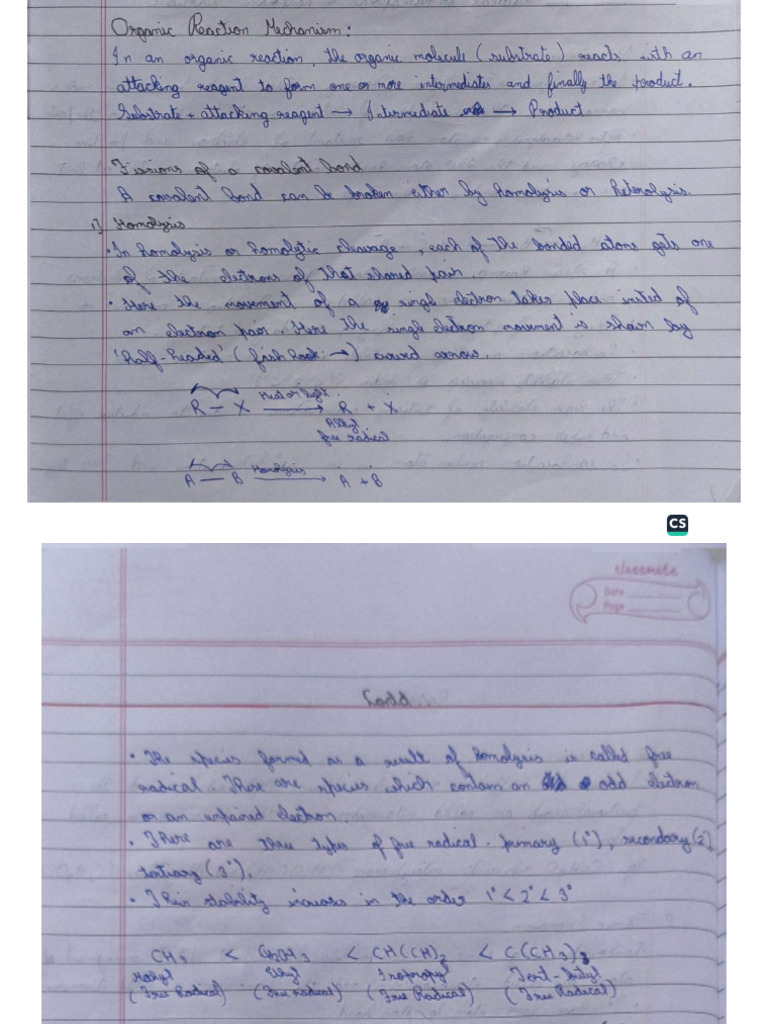 Organic Reaction Mechanism:
In an organic reaction, the organic molecule (substrate) reacts with an
attacking reagent to form one or more intermediates and finally the product.
Substrate + attacking reagent → Intermediate → Product
Fissions of a covalent bond
A covalent bond can be broken either by homolysis or heterolysis.
1) Homolysis
• In homolysis or homolytic cleavage, each of the bonded atoms gets one
of the electrons of that shared pair.
• Here the movement of a single electron takes place insted of
an electron pair. Here the single electron movement is shown by
'half-headed' (fish hook: ⇀) curved arrows.
R — X Heat or light → Ṙ + Ẋ
Alkyl
free radical
A — B Homolysis → Ȧ + Ḃ
CS
classmate
Date
Page
Contd
• The species formed as a result of homolysis is called free
radical. These are species which contain an odd electron
or an unpaired electron
• There are three types of free radical - primary (1°), secondary (2°)
tertiary (3°).
• Their stability increases in the order 1° < 2° < 3°
CH₃ < CH₂CH₃ < CH(CH)₂ < C(CH₃)₃
Methyl Ethyl Isopropyl Tert-butyl
(Free Radical) (Free radical) (Free Radical) (Free Radical)